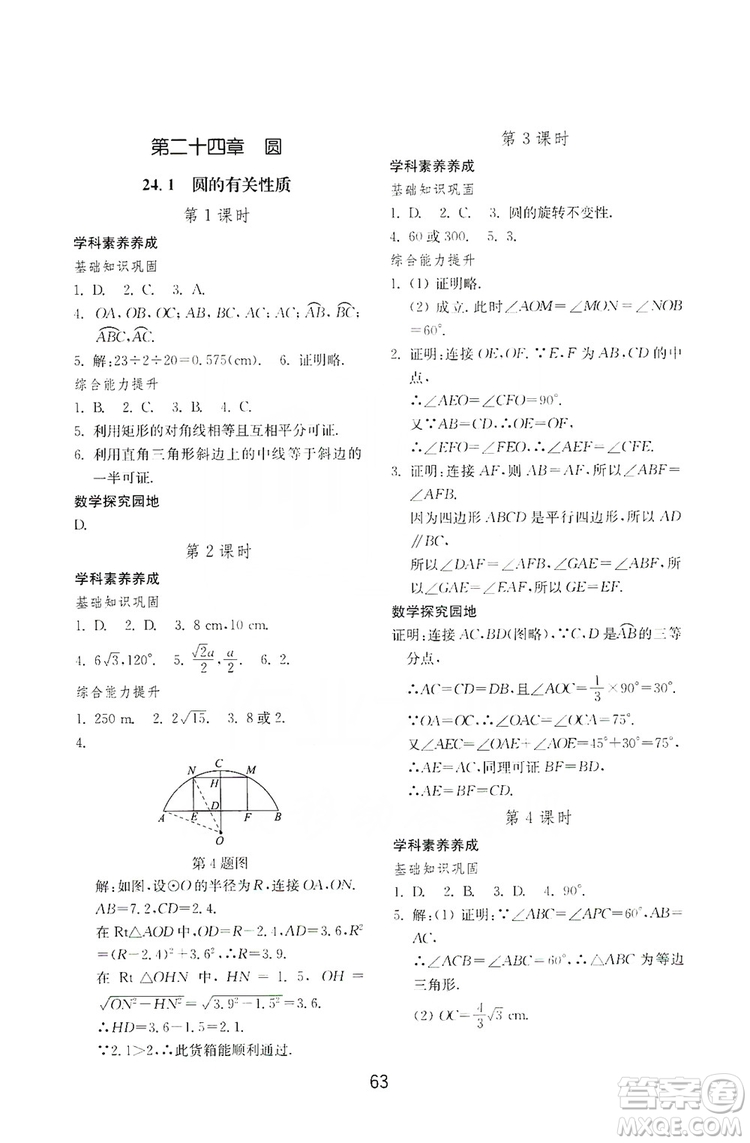 第二十四章 圆
24.1 圆的有关性质
第1课时
学科素养养成
基础知识巩固
1. D. 2. B. 3. A.
4. OA, OB, OC; AB, BC, AC; A͡B, B͡C;
A͡BC, A͡C.
5. 解:23÷2÷20=0.575(cm). 6. 证明略.
综合能力提升
1. B. 2. C. 3. A. 4. 2.
5. 利用矩形的对角线相等且互相平分可证.
6. 利用直角三角形斜边上的中线等于斜边的
一半可证.
数学探究园地
D.
第2课时
学科素养养成
基础知识巩固
1. D. 2. D. 3. 8 cm,10 cm.
4. 6√3,120°. 5. √2a/2, a/2. 6. 2.
综合能力提升
1. 250 m. 2. 2√15. 3. 8或2.
4.
N C M
H
A E D F B
O
第4题图
解:如图,设⊙O的半径为R,连接OA,ON.
AB=7.2,CD=2.4.
在Rt△AOD中,R²=3.6²+OD²=3.6²
+(R-2.4)²∴R=3.9.
在 Rt △OHN 中, HN = 1.5, OH =
√(ON²-HN²)=√(3.9²-1.5²)=3.6.
∴HD=3.6-1.5=2.1.
∵2.1>2.∴此货箱能顺利通过.
第3课时
学科素养养成
基础知识巩固
1. D. 2. C. 3. 圆的旋转不变性.
4. 60或300. 5. 3.
综合能力提升
1. (1) 证明略.
(2) 成立. 此时∠AOM=∠MON=∠NOB
=60°.
2. 证明:连接OE,OF.∵E、F为AB,CD的中
点,
∴∠AEO=∠CFO=90°.
又∵AB=CD∴OE=OF.
∴∠EFO=∠FEO,∴∠AEF=∠CFE.
3. 证明:连接AF,则AB=AF,所以∠ABF=
∠AFB.
因为四边形ABCD是平行四边形,所以AD
∥BC,
所以∠DAF=∠AFB,∠GAE=∠ABF,所
以∠GAE=∠EAF,所以G͡E=E͡F.
数学探究园地
证明:连接AC,BD(图略),∵C、D是A͡B的三等
分点,
∴AC=CD=DB,且∠AOC=1/3×90°=30°.
∵OA=OC,∴∠OAC=∠OCA=75°.
又∠AEC=∠OAE+∠AOE=45°+30°=75°,
∴AE=AC.同理可证BF=BD.
∴AE=BF=CD.
第4课时
学科素养养成
基础知识巩固
1. D. 2. B. 3. D. 4. 90°.
5. 解:(1) 证明:∵∠ABC=∠APC=60°,AB=
AC.
∴∠ACB=∠ABC=60°,∴△ABC为等边
三角形.
(2) OC=4/3√3 cm.
63
答案圈
MXQE.COM